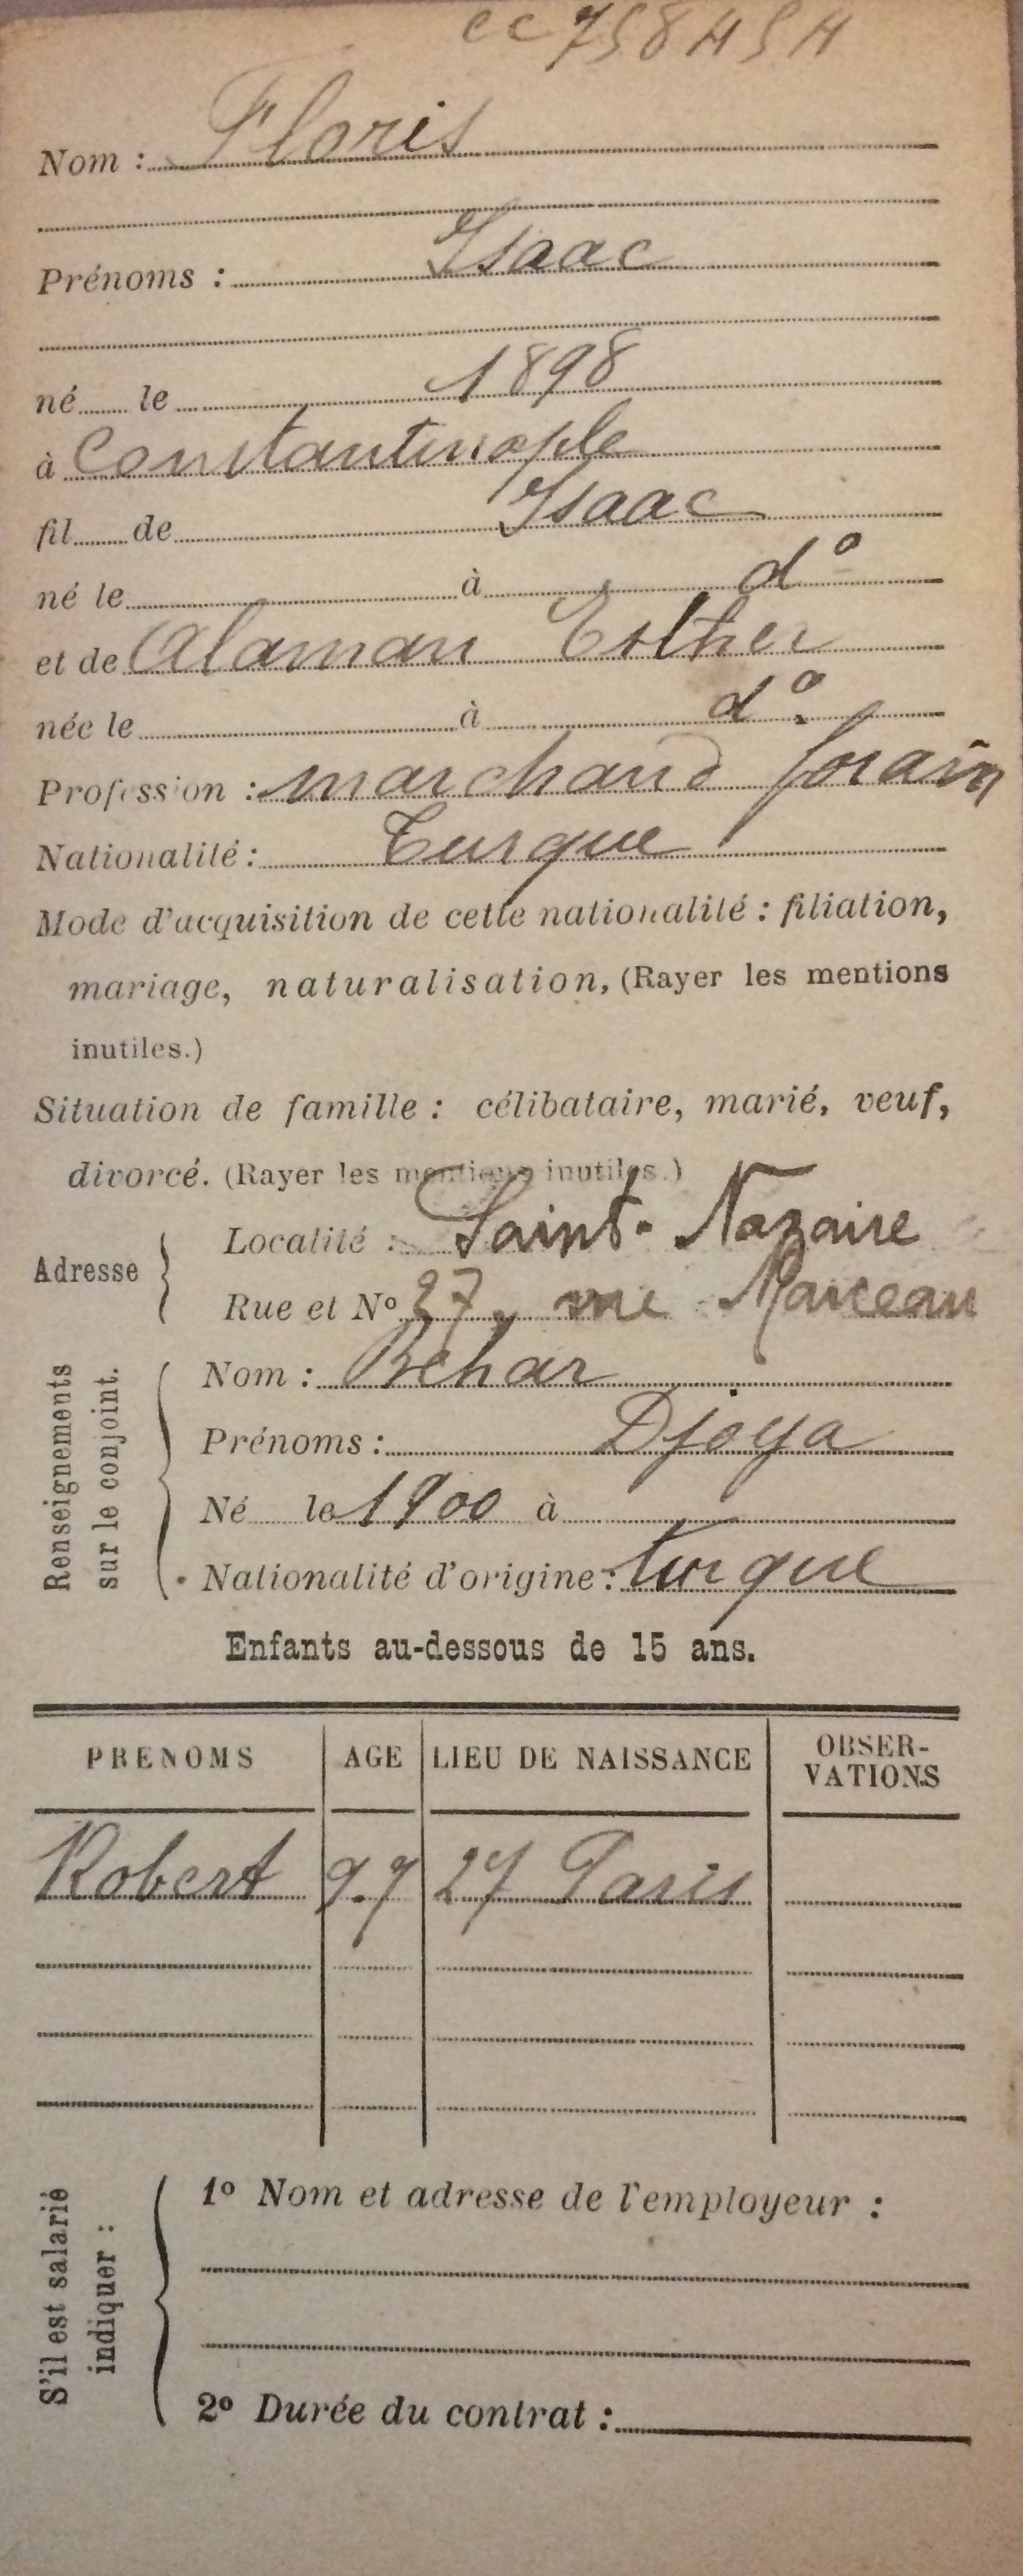 CC 758454
Nom : Floris
Prénoms : Isaac
né le 1898
à Constantinople
fil de Isaac
né le à d°
et de Alaman Esther
née le à d°
Profession : marchand forain
Nationalité : Turque
Mode d'acquisition de cette nationalité : filiation,
mariage, naturalisation, (Rayer les mentions
inutiles.)
Situation de famille : célibataire, marié, veuf,
divorcé. (Rayer les mentions inutiles.)
Adresse
Localité : Saint-Nazaire
Rue et N° 37, rue Marceau
Renseignements
sur le conjoint.
Nom : Behar
Prénoms : Djoya
Né le 1900 à
Nationalité d'origine : turque
Enfants au-dessous de 15 ans.
PRENOMS AGE LIEU DE NAISSANCE OBSER-
VATIONS
Robert 9.7 27 Paris
S'il est salarié
indiquer :
1° Nom et adresse de l'employeur :
2° Durée du contrat :